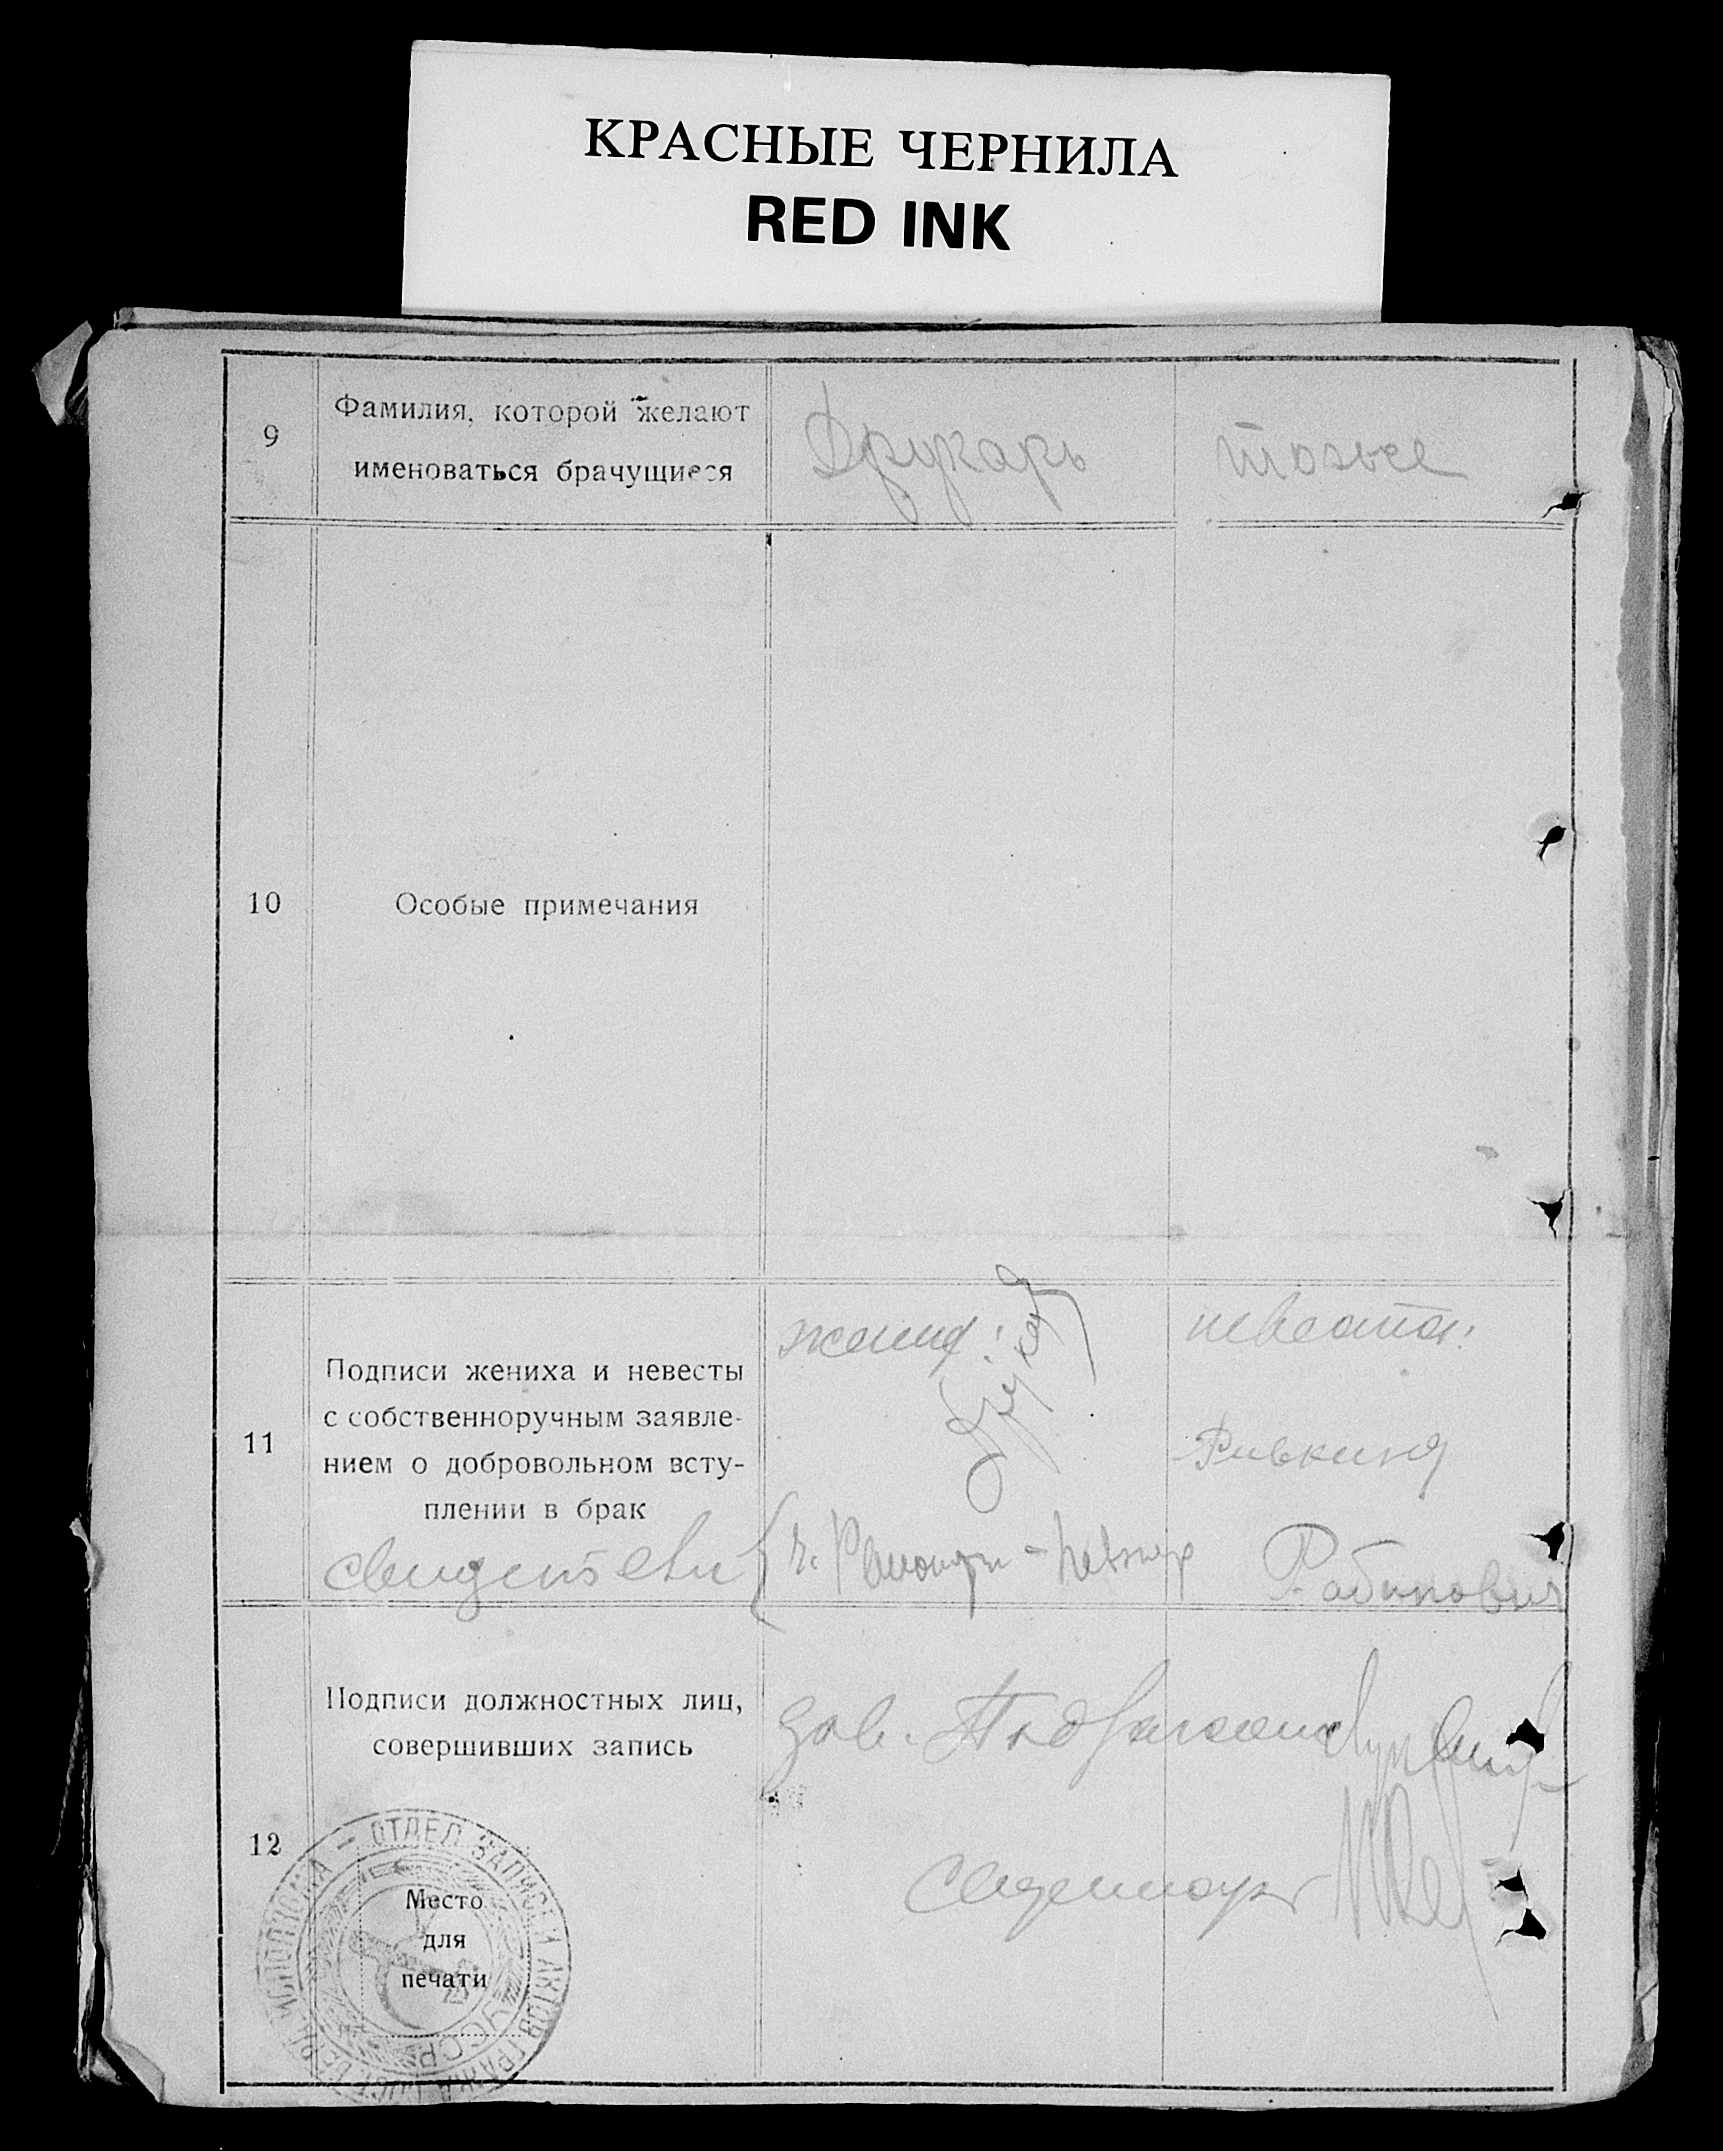 КРАСНЫЕ ЧЕРНИЛА
RED INK
9
Фамилия, которой желают
именоваться брачущиеся
Друкарь
тоже
10
Особые примечания
11
Подписи жениха и невесты
с собственноручным заявле-
нием о добровольном всту-
плении в брак
жених:
Друкар
невеста:
Ривкинд
свидетели
Рабинович
12
Подписи должностных лиц,
совершивших запись
Зав.
Место
для
печати
ОТДЕЛ ЗАПИСИ АКТОВ ГРАЖД
УССР